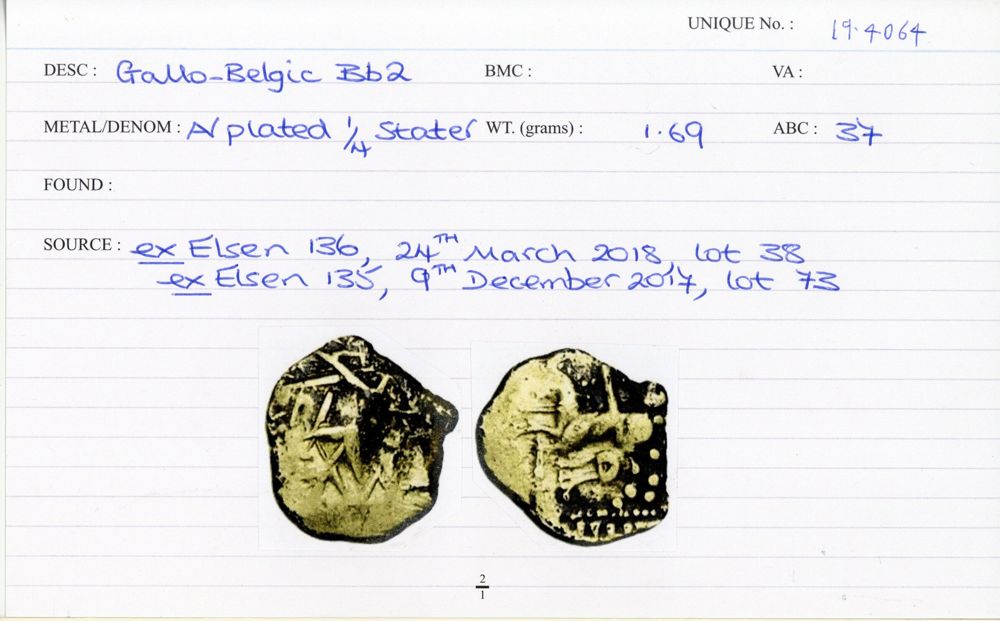 UNIQUE No. : 19.4064
DESC : Gallo-Belgic Bb2 BMC : VA :
METAL/DENOM : AV plated 1/4 Stater WT. (grams) : 1.69 ABC : 37
FOUND :
SOURCE : ex Elsen 136, 24TH March 2018, lot 38
ex Elsen 135, 9TH December 2017, lot 73
2
1